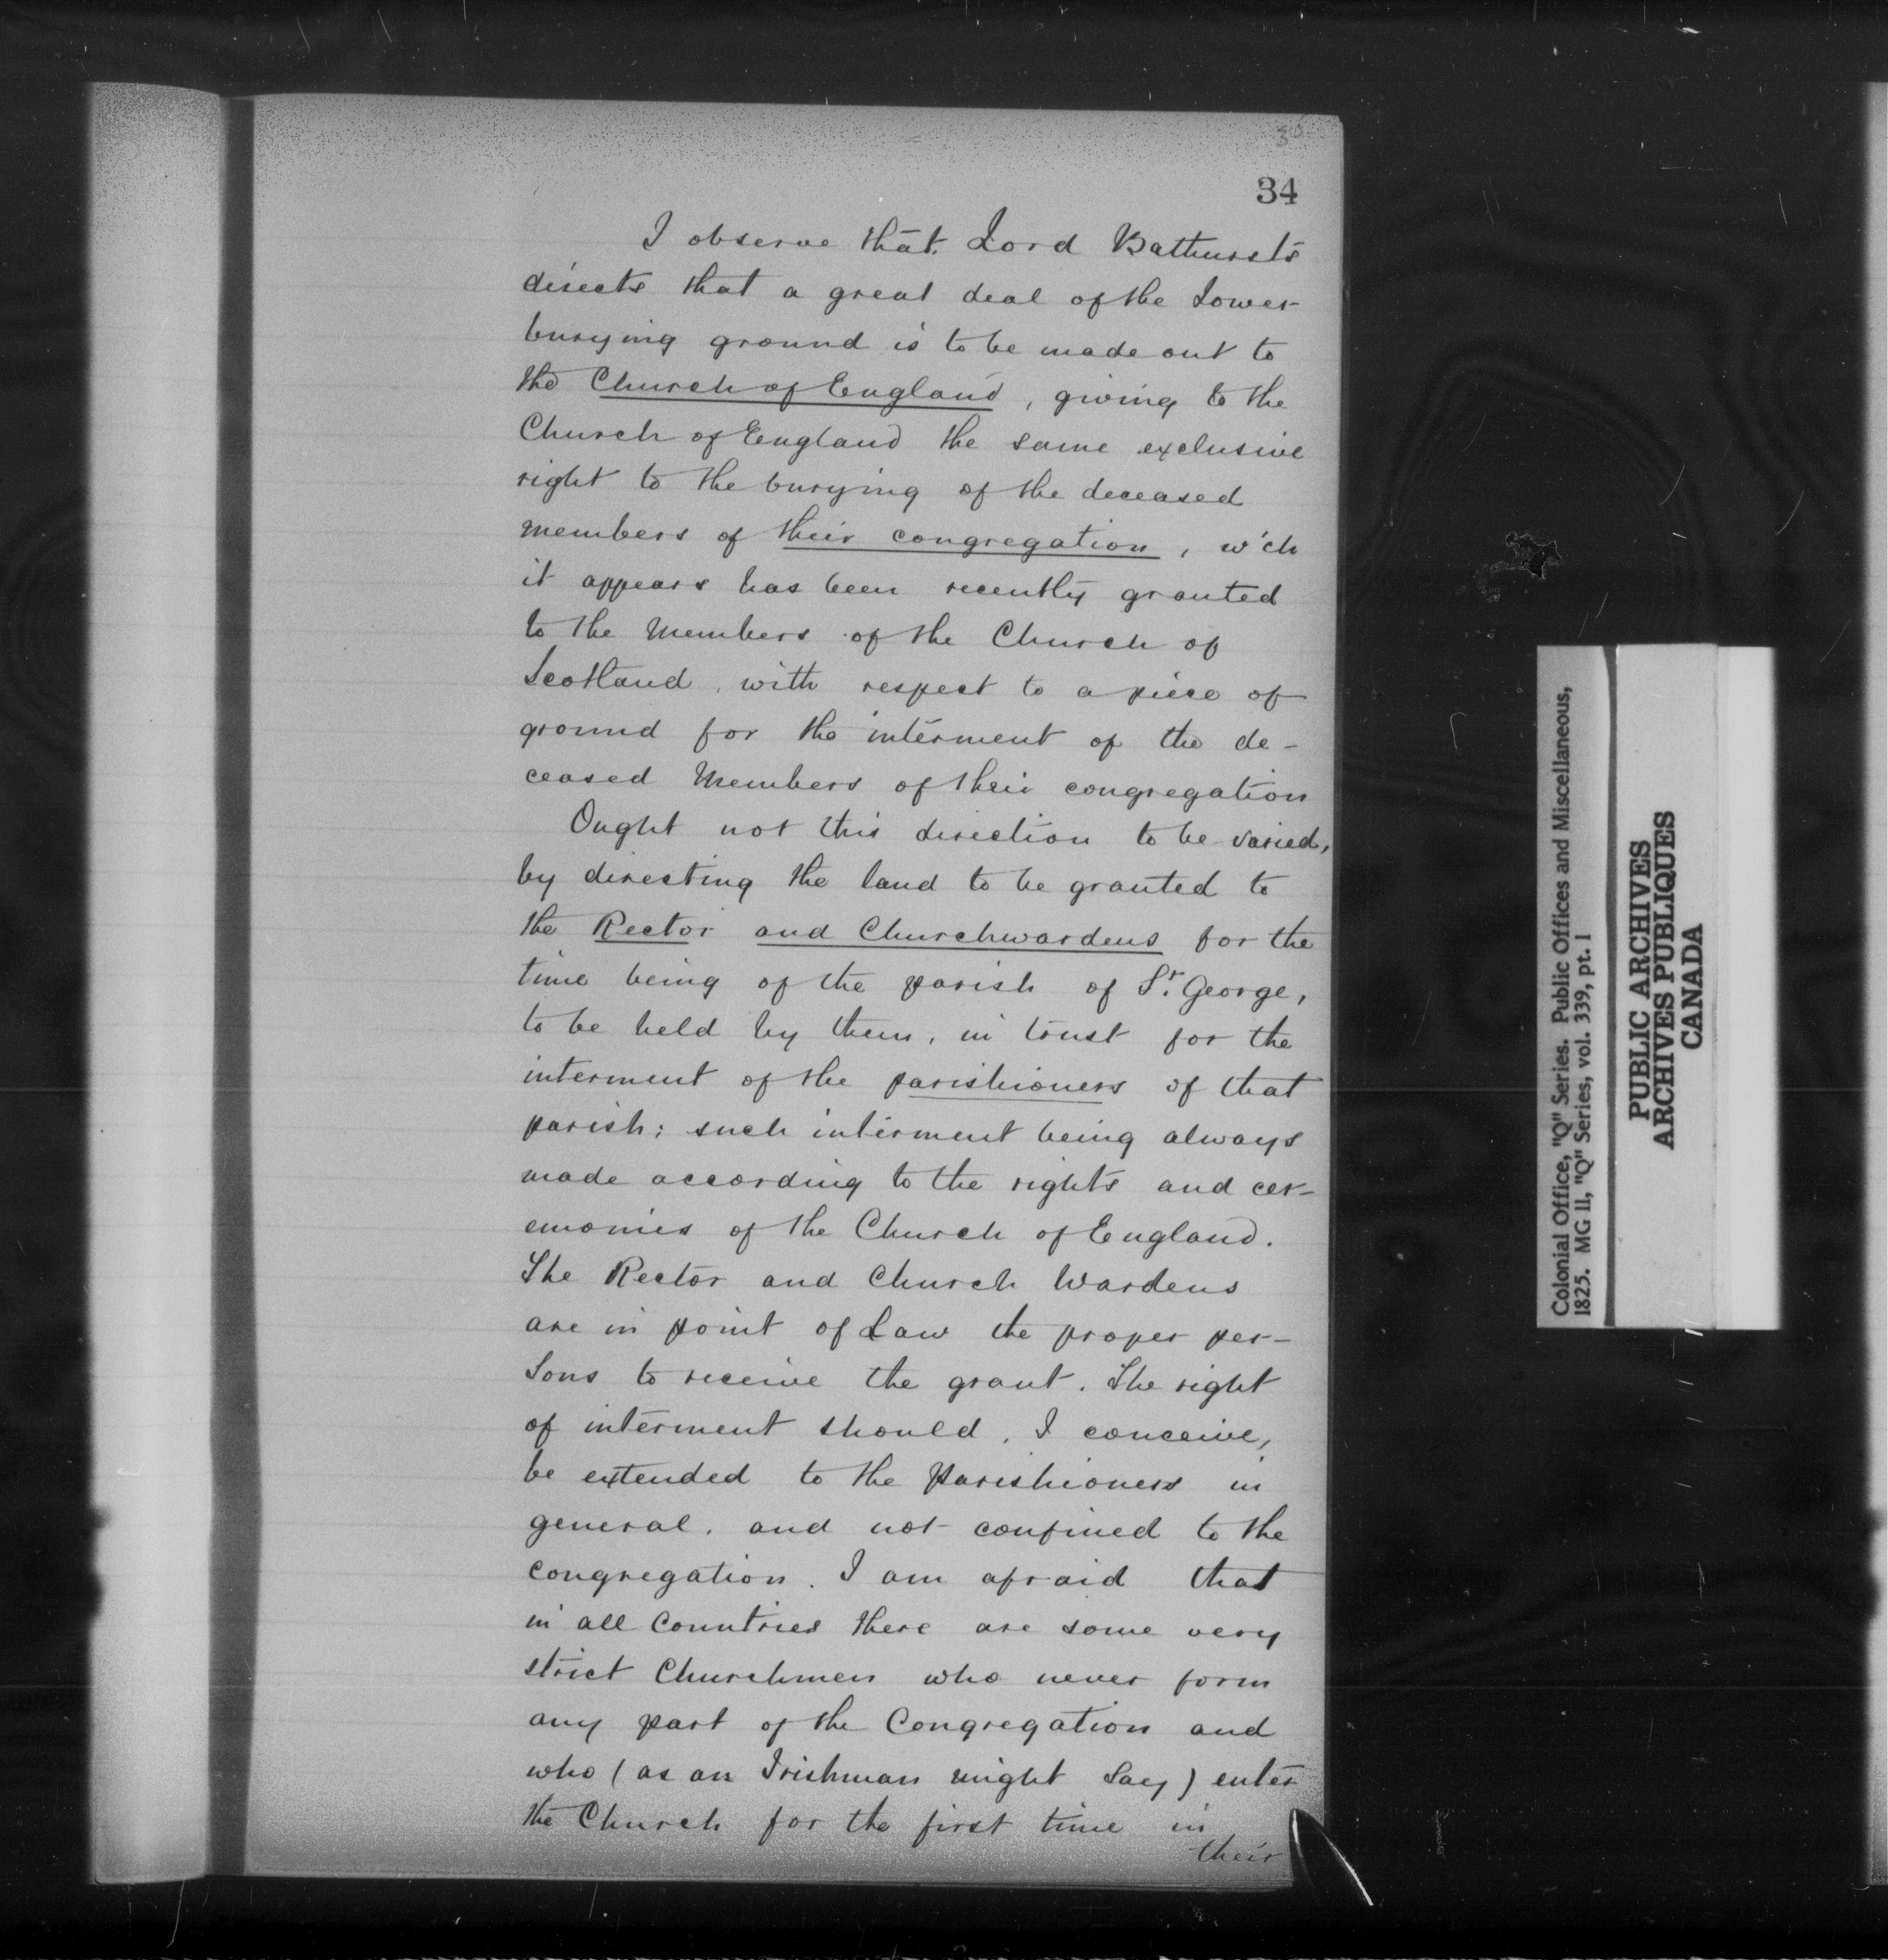 34
I observe that Lord Bathursts
directs that a great deal of the Lower
burying ground is to be made out to
the Church of England, giving to the
Church of England the same exclusive
right to the burying of the deceased
members of their congregation, w'ch
it appears has been recently granted
to the Members of the Church of
Scotland, with respect to a piece of
ground for the interment of the de-
ceased Members of their congregation
Ought not this direction to be varied,
by directing the land to be granted to
the Rector and Churchwardens for the
time being of the parish of St. George,
to be held by them, in trust for the
interment of the parishioners of that
parish; such interment being always
made according to the rights and cer-
emonies of the Church of England.
The Rector and Church Wardens
are in point of Law the proper per-
sons to receive the grant. The right
of interment should, I conceive,
be extended to the Parishioners in
general, and not confined to the
congregation. I am afraid that
in all Countries there are some very
strict Churchmen who never form
any part of the Congregation and
who (as an Irishman might say) enter
the Church for the first time in
their
Colonial Office, "Q" Series. Public Offices and Miscellaneous,
1825. MG 11, "Q" Series, vol. 339, pt. 1
PUBLIC ARCHIVES
ARCHIVES PUBLIQUES
CANADA